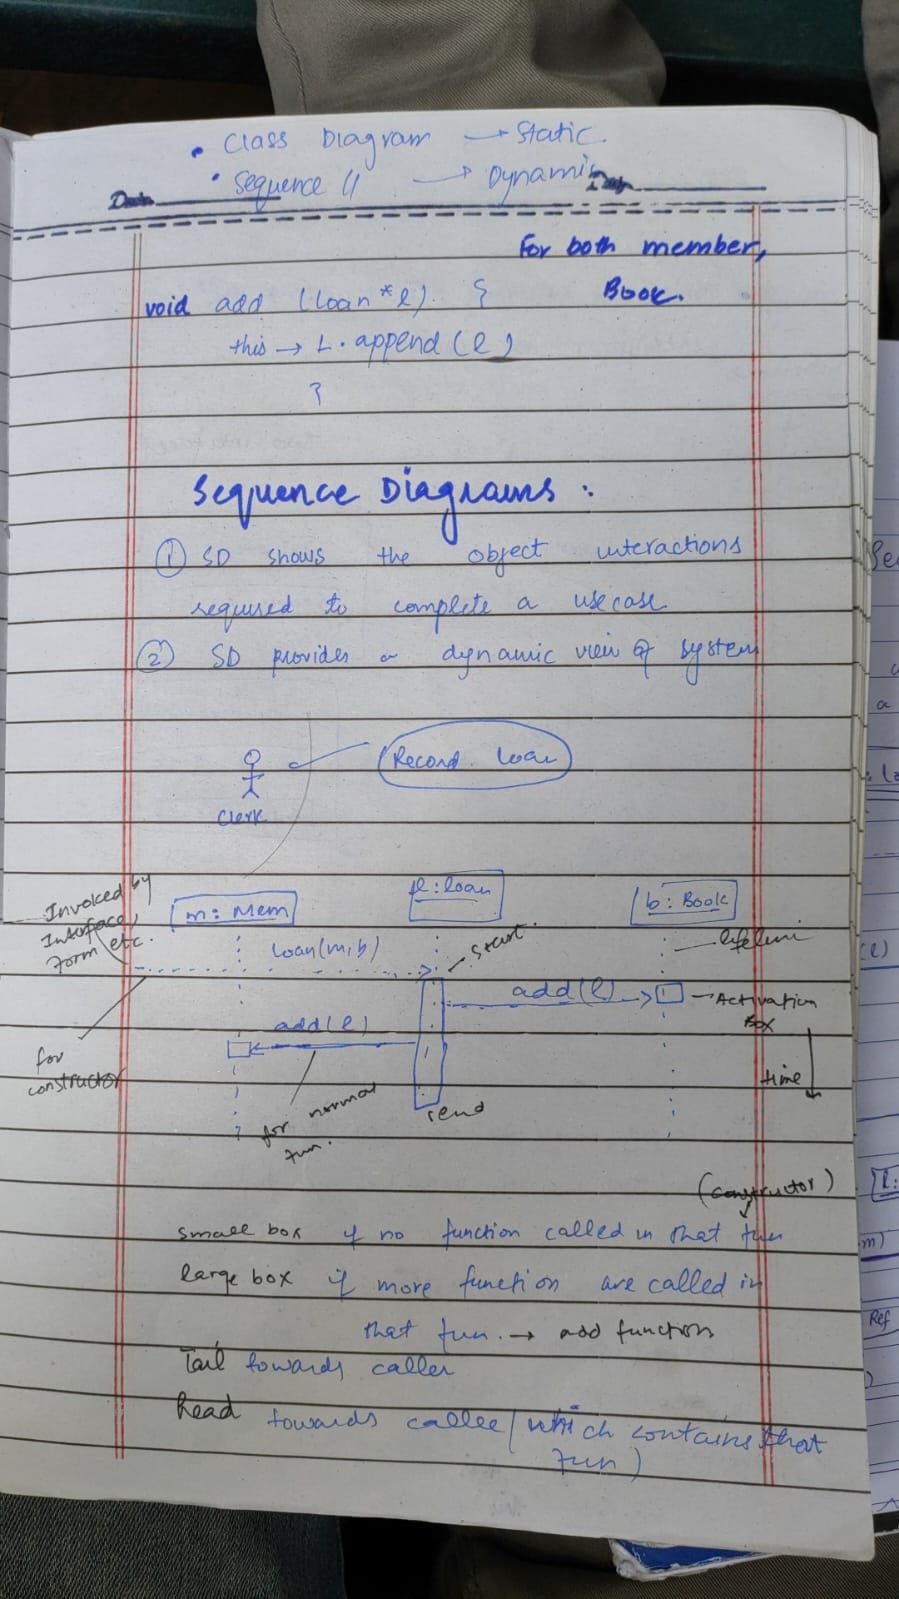 • Class Diagram → Static.
• Sequence 11 → Dynamic
For both member,
Book.
void add (loan *l) {
this → L.append(l)
}
Sequence Diagrams :
① SD shows the object interactions
required to complete a usecase
② SD provides a dynamic view of system
Record loan
Clerk
Invoked by
Interface,
form etc.
m: Mem
l: loan
b: Book
loan(m,b)
start.
lifeline
add(l)
Activation
Box
add(l)
for
constructor
time
for normal
fun.
end
(constructor)
small box if no function called in that fun
large box if more function are called in
that fun. → add function
Tail towards caller
head towards callee (which contains that
fun)